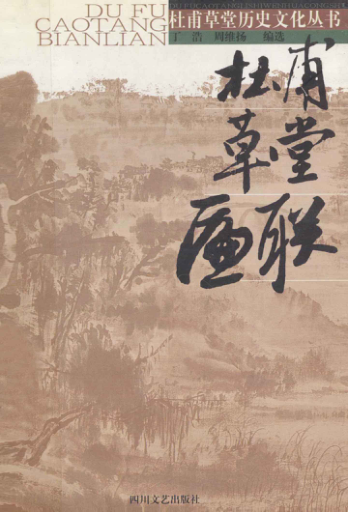 DU FU
CAOTANG
BIANLIAN
杜甫草堂历史文化丛书
丁浩 周维扬 编选
杜甫
草堂
匾联
四川文艺出版社